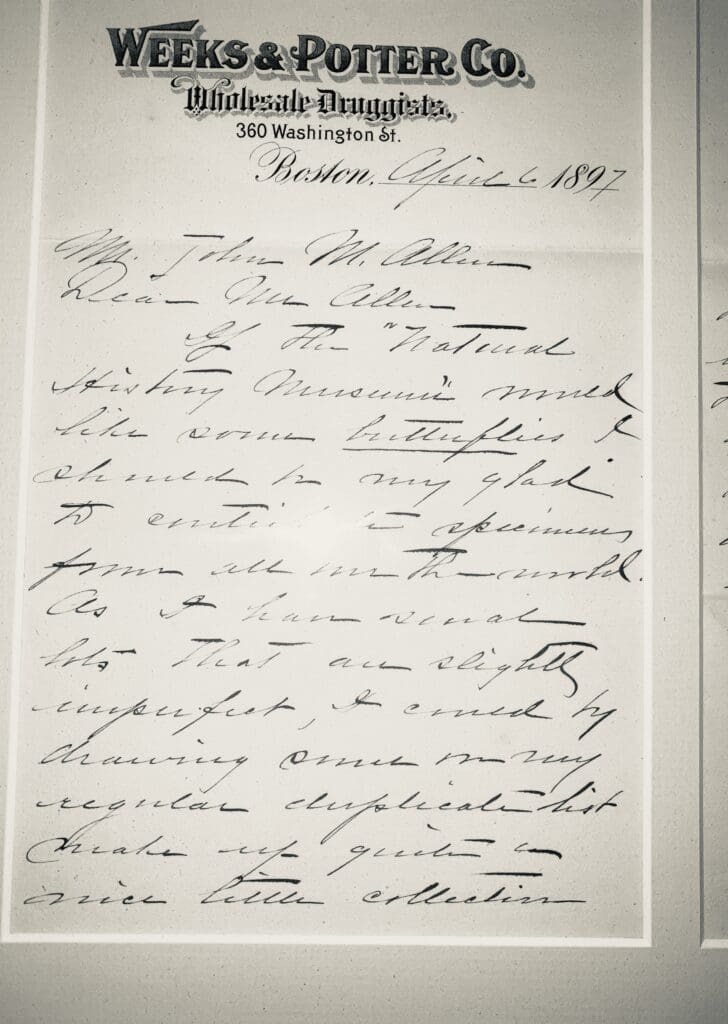 WEEKS & POTTER CO.
Wholesale Druggists.
360 Washington St.
Boston, April 6 1897
Mr. John M. Allen
Dear Mr Allen
If the "Natural
History Museum" would
like some butterflies I
should be very glad
to contribute specimens
from all over the world.
As I have several
lots that are slightly
imperfect, I could by
drawing some on my
regular duplicate list
make up quite a
nice little collection